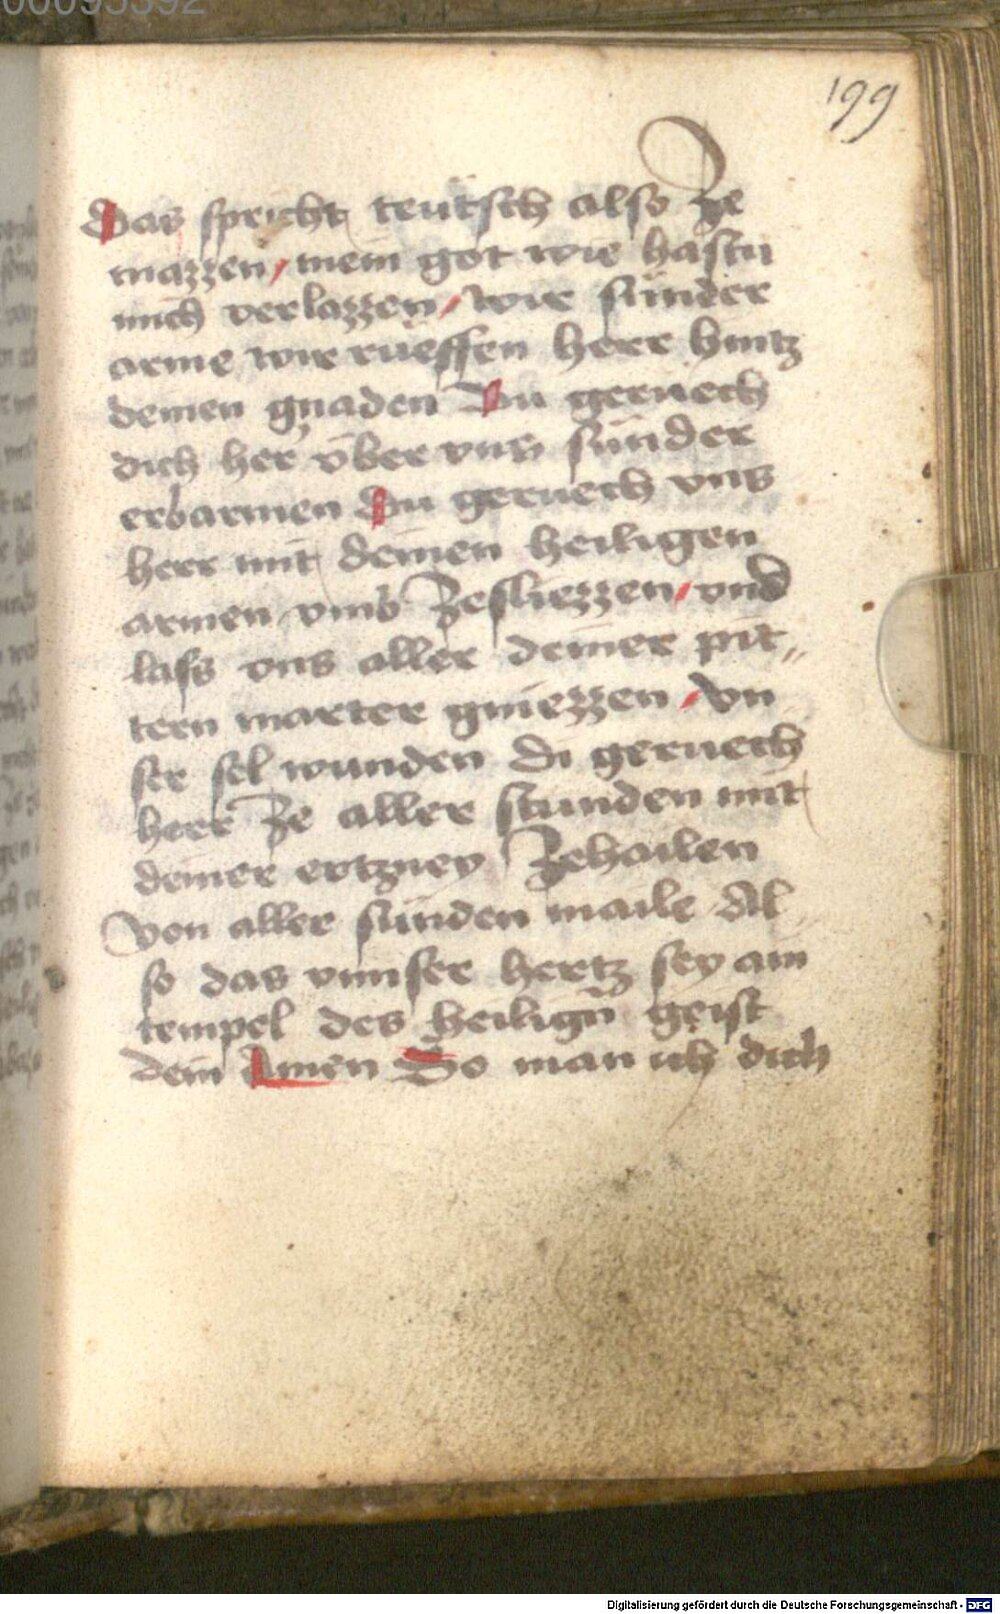 00095392
199
Das spricht teütsch also ze
mazzen / mein got wie hastu
mich verlazzen / wir sünder
arme wir rüeffen herr hintz
deinen gnaden Du geruech
dich her über vns sünder
erbarmen Du geruech vns
herr mit deinen heiligen
armen vmb zesliezzen / vnd
lass vns aller deiner pit„
tern marter gniezzen / Vn
ser sel wunden di geruech
herr ze aller stunden mit
deiner ertzney zehailen
von aller sünden maile Al
so das vnnser hertz sey ain
tempel des heilign̄ geist
dein Amen So man ich dich
Digitalisierung gefördert durch die Deutsche Forschungsgemeinschaft - DFG